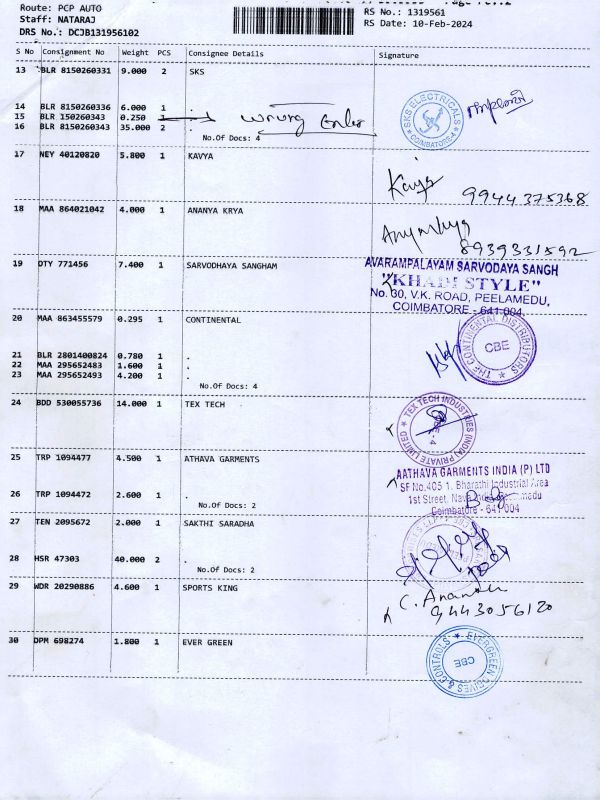 Route: PCP AUTO
Staff: NATARAJ
DRS No.: DCJB131956102
RS No.: 1319561
RS Date: 10-Feb-2024
S No Consignment No Weight PCS Consignee Details Signature
13 BLR 8150260331 9.000 2 SKS
14 BLR 8150260336 6.000 1 .
15 BLR 150260343 0.250 1 → wrong enter
16 BLR 8150260343 35.000 2 .
No.Of Docs: 4
SKS ELECTRICALS
COIMBATORE-4
17 NEY 40120820 5.800 1 KAVYA
Kavya 9944375368
18 MAA 864021042 4.000 1 ANANYA KRYA
8939331592
19 DTY 771456 7.400 1 SARVODHAYA SANGHAM
AVARAMPALAYAM SARVODAYA SANGH
"KHADI STYLE"
No. 30, V.K. ROAD, PEELAMEDU,
COIMBATORE - 641 004.
20 MAA 863455579 0.295 1 CONTINENTAL
21 BLR 2801400824 0.780 1 .
22 MAA 295652483 1.600 1 .
23 MAA 295652493 4.200 1 .
No.Of Docs: 4
THE CONTINENTAL DISTRIBUTORS
CBE
24 BDD 530055736 14.000 1 TEX TECH
TEX TECH INDUSTRIES (INDIA) PRIVATE LIMITED
25 TRP 1094477 4.500 1 ATHAVA GARMENTS
26 TRP 1094472 2.600 1 .
No.Of Docs: 2
AATHAVA GARMENTS INDIA (P) LTD
SF No.405 1, Bharathi Industrial Area
1st Street,
Coimbatore - 641 004
27 TEN 2095672 2.000 1 SAKTHI SARADHA
28 HSR 47303 40.000 2 .
No.Of Docs: 2
29 WDR 20290886 4.600 1 SPORTS KING
C. Ananth
9443056120
30 DPM 698274 1.800 1 EVER GREEN
EVERGREEN DRIVES & CONTROLS
CBE